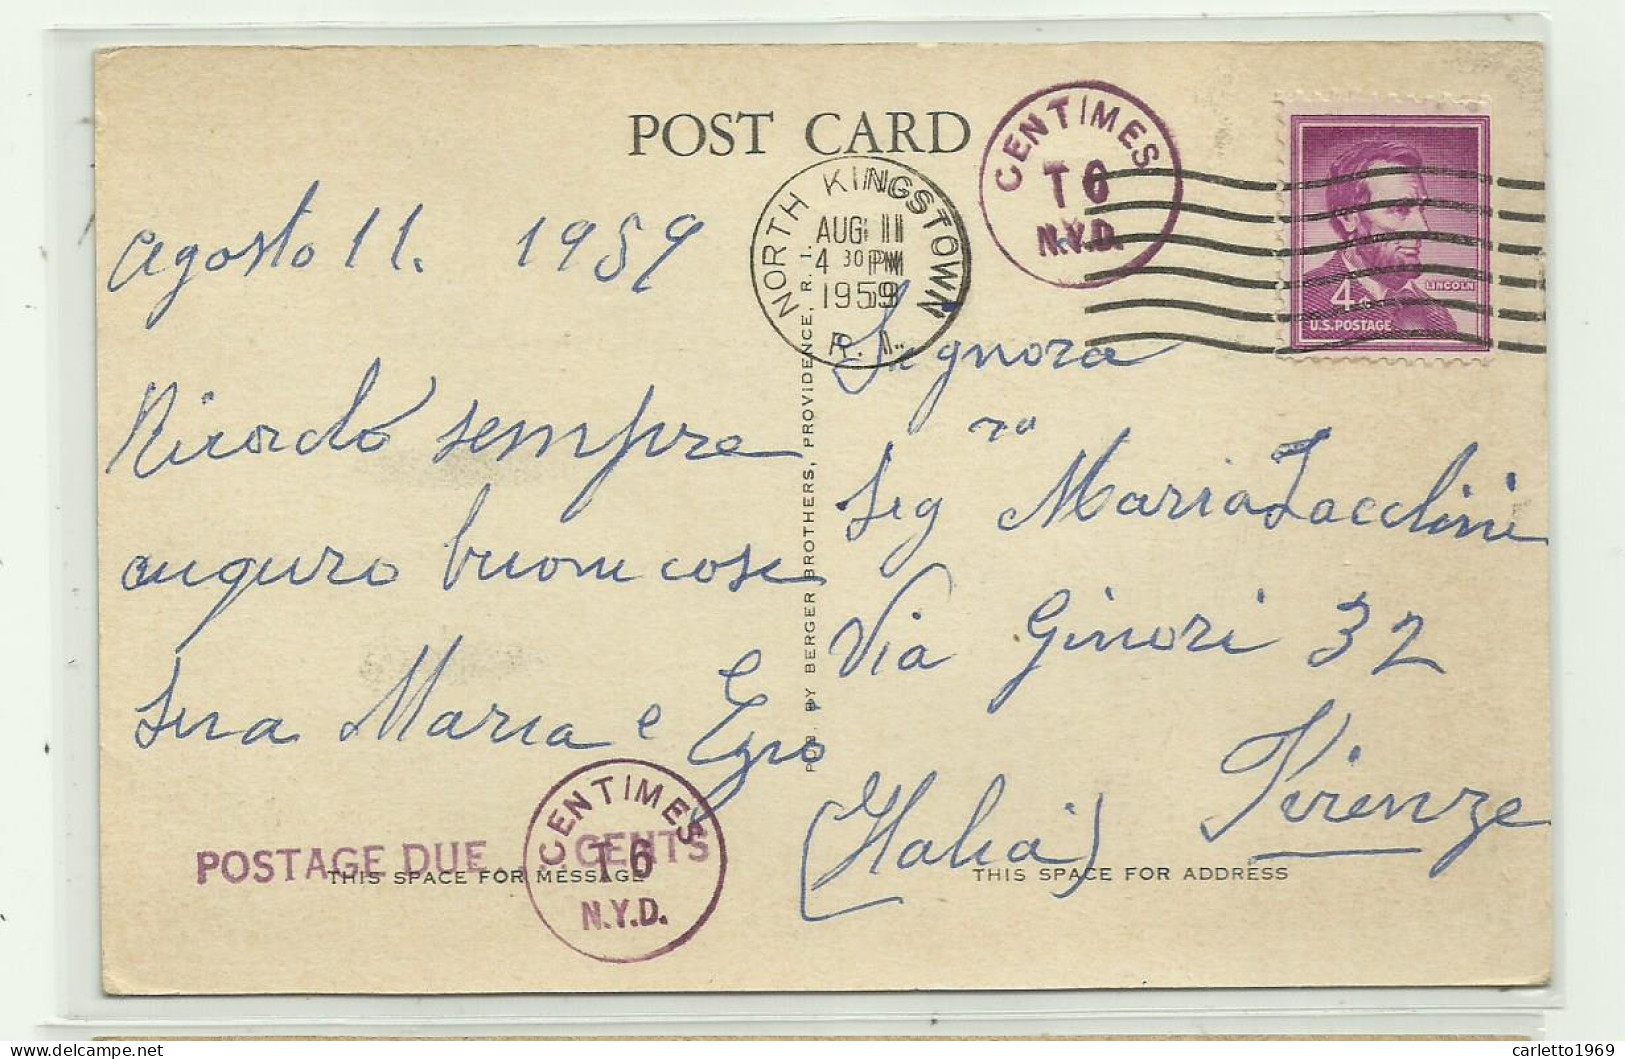 POST CARD
CENTIMES
T 6
N.Y.D.
NORTH KINGSTOWN
AUG 11
4 30 PM
1959
R. I.
LINCOLN
4¢
U.S. POSTAGE
Agosto 11. 1959
Ricordo sempre
auguro buone cose
Maria e
Signora
Sig ra Maria Zacchini
Via Ginori 32
Firenze
(Italia)
PUB. BY BERGER BROTHERS, PROVIDENCE, R. I.
POSTAGE DUE CENTS
CENTIMES
T 6
N.Y.D.
THIS SPACE FOR MESSAGE
THIS SPACE FOR ADDRESS
carletto1969